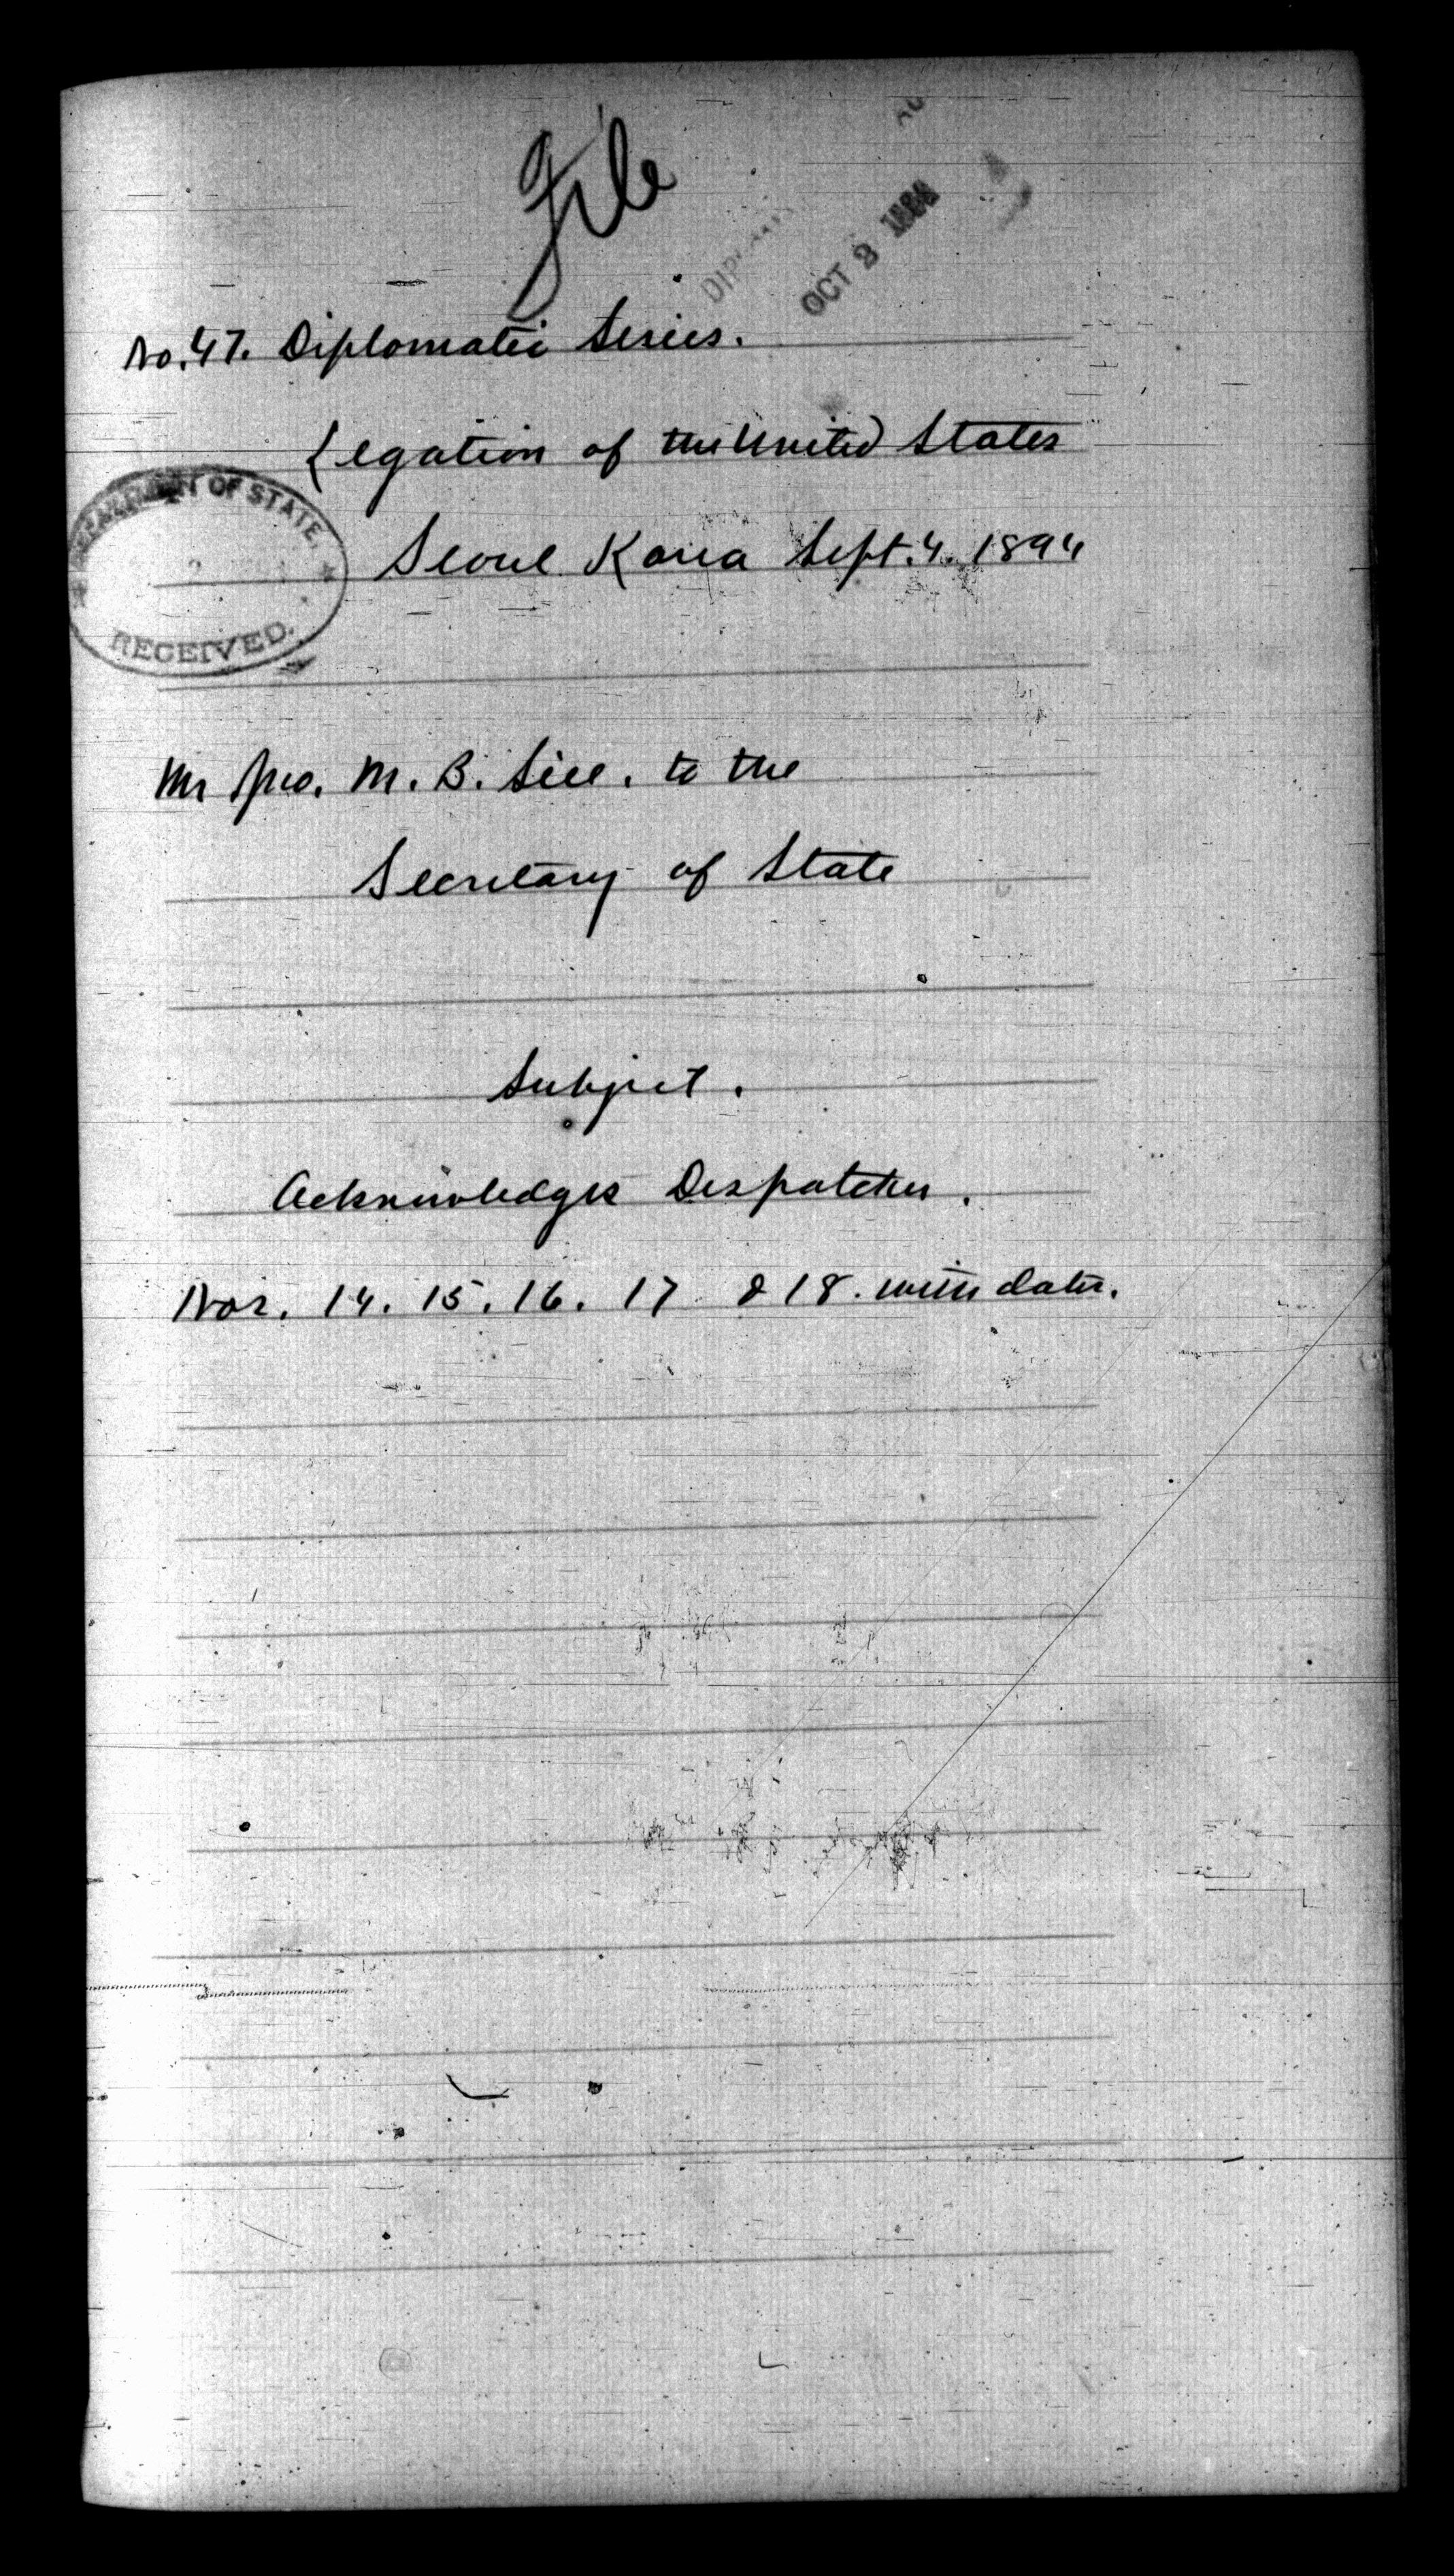 File
OCT 8 1894
No. 47. Diplomatic Series.
Legation of the United States
DEPARTMENT OF STATE,
RECEIVED.
Seoul Korea Sept. 4. 1894
Mr Jno. M. B. Sill. to the
Secretary of State
Subject.
Acknowledges Despatches.
Nos. 14. 15. 16. 17 & 18. with dates.